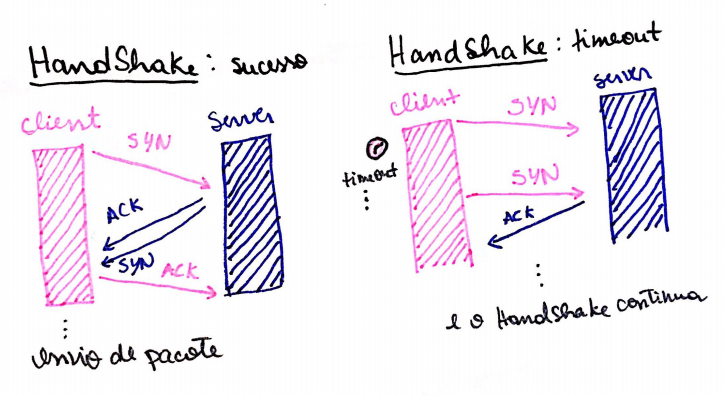 HandShake: sucesso
client
server
SYN
ACK
SYN
ACK
envio de pacote
HandShake: timeout
client
server
SYN
timeout
SYN
ACK
e o HandShake continua